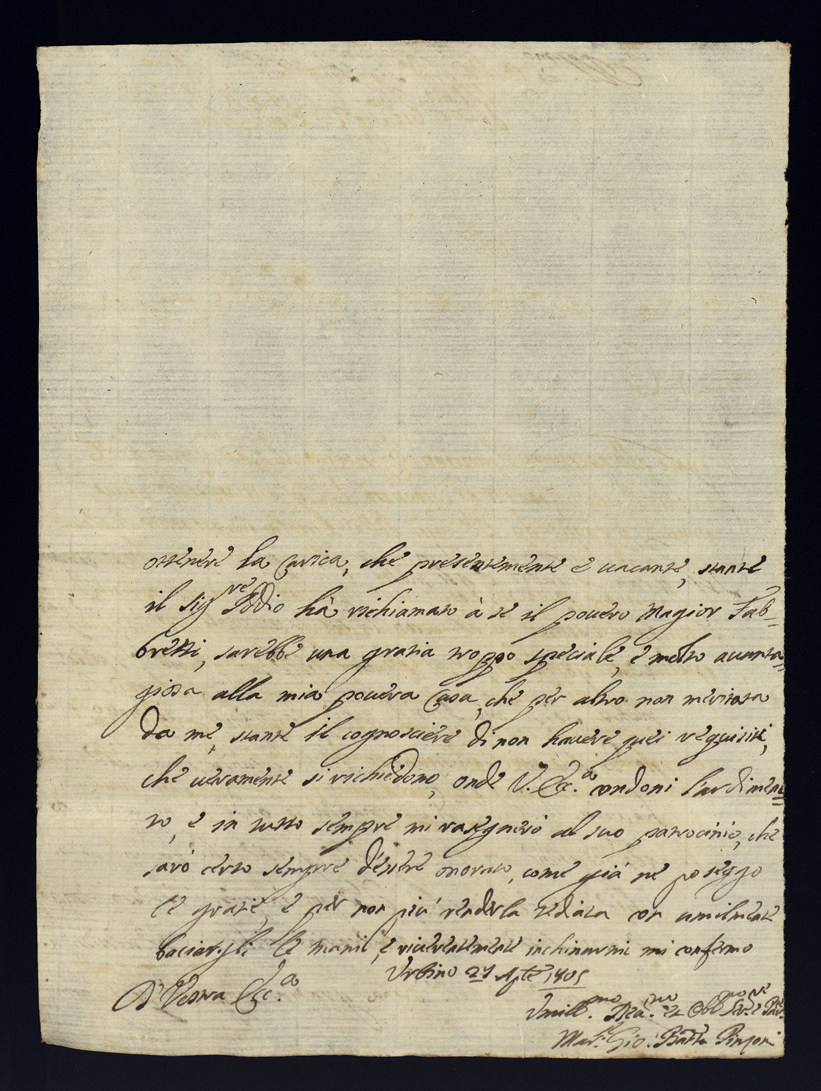 ottenere la Carica, che presentemente è uacante, stante
il Sig.re Iddio ha richiamato à sé il pouero Magior Fab=
bretti, sarebbe una gratia troppo speciale, e molto auanta=
giosa alla mia pouera Casa, che per altro non meritata
da me, stante il cognosciere di non hauere quei requisiti,
che ueramente si richiedono, onde V. Ec.a condoni l'ardimen=
to, e in tutto sempre mi rasegnerò al suo patrocinio, che
sarò certo sempre d'essere onorato, come già ne posseggo
le gratie, e per non più renderla tediata con umilmente
baciargli le mani, e riuerentemente inchinarmi mi confermo
Urbino 27
D Vostra Ecc.a
Umill.mo
Gio: Batta